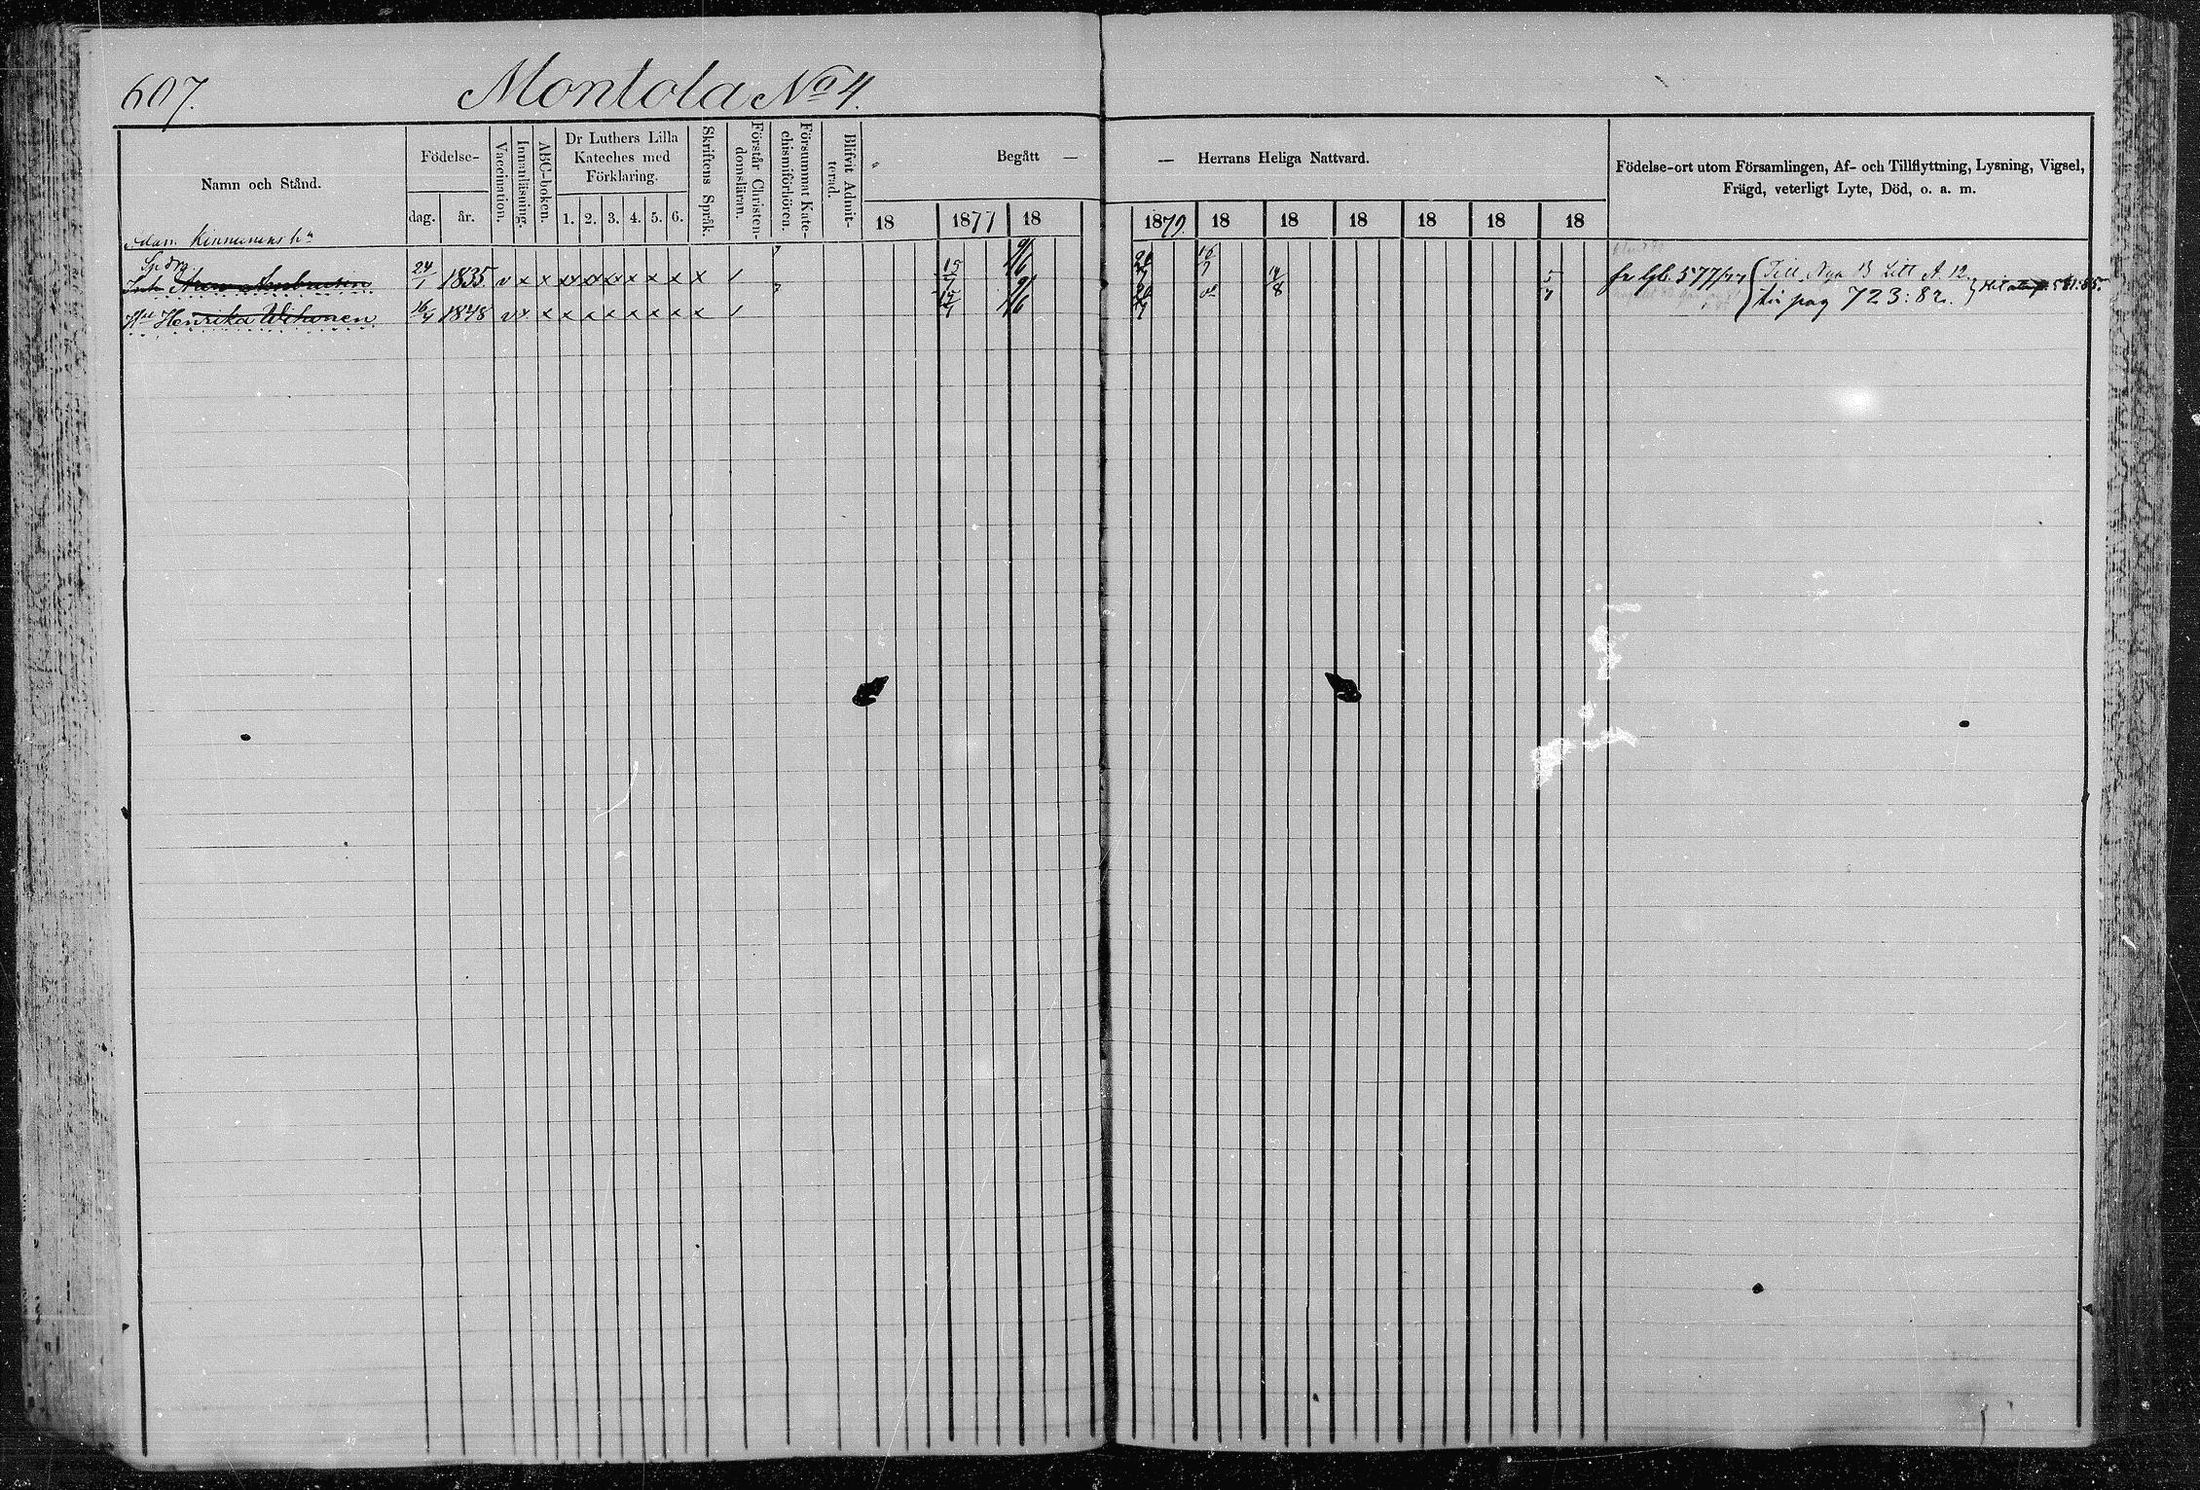 607.
Montola No 4.
Namn och Stånd.
Födelse-
dag.
år.
Vaccination.
Innanläsning.
ABC-boken.
Dr Luthers Lilla
Kateches med
Förklaring.
1. 2. 3. 4. 5. 6.
Skriftens Språk.
Förstår Christen-
domsläran.
Försummat Kate-
chismiförhören.
Blifvit Admit-
terad.
Begått —
— Herrans Heliga Nattvard.
18 1877 18 1879. 18 18 18 18 18 18
Födelse-ort utom Församlingen, Af- och Tillflyttning, Lysning, Vigsel,
Frägd, veterligt Lyte, Död, o. a. m.
Kinnunens
24/1 1835 v x x x x x x x x x / 15/7 9/6 20/7 16/7 7/8 5/7 577/77 Till Nya B Litt A. 12.
Hu Henrika 16/4 1848 v x x x x x x x x x / 15/7 9/6 20/7 pag 723:82.